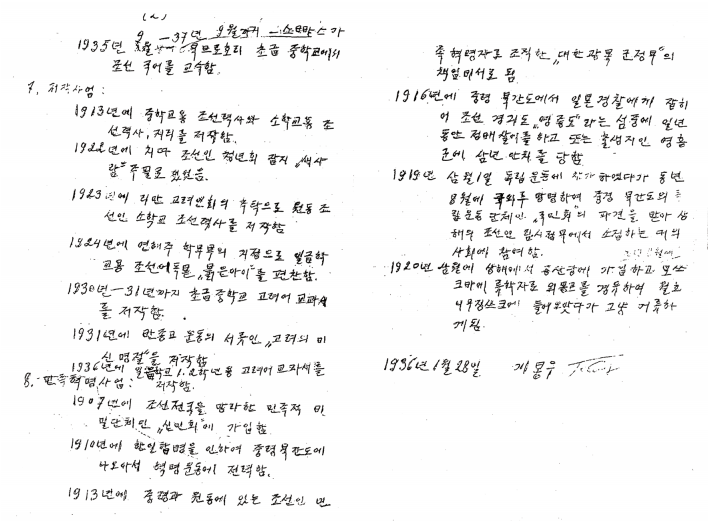 (2)
9 —37년 9월까지
1935년 초급 중학교에서
조선 국어를 교수함.
7. 저작사업:
1913년에 중학교용 조선력사와 소학교용 조
선력사, 지리를 저작함.
1922년에 치따 조선인 청년회 잡지 „새사
람" 주필로 있었음.
1923년에 고려 의 촉탁으로 원동 조
선인 소학교 조선력사를 저작함
1924년에 연해주 학무부의 지정으로 일급학
교용 조선어 „붉은아이"를 편찬함.
1930년—31년까지 초급중학교 고려어 교과서
를 저작함.
1931년에 반종교 운동의 서류인 „고려의 미
신 명절"을 저작함
1936년에 1.2학년용 고려어 교과서를
저작함.
8. 혁명사업:
1907년에 조선전국을 망라한 민족적 비
밀단체인 „신민회"에 가입함
1910년에 한일합병을 인하여 중령북간도에
나와서 혁명운동에 전력함.
1913년에 중령과 원동에 있는 조선인 민
족혁명자로 조직한 „대한광복군정부"의
책임비서로 됨.
1916년에 중령 북간도에서 일본경찰에게 잡히
어 조선 경긔도 „영종도"라는 섬중에 일년
동안 정배살이를 하고 또는 출생지인 영흥
군에 삼년 안치를 당함
1919년 삼월1일 독립운동에 참가하였다가 동년
8월에 망명하여 중령 북간도의
립운동단체인 „국민회"의 파견을 받아 상
해의 조선인 림시정부에서 소집하는
사회에 참여함.
1920년 삼월에 상해에서 공산당에 가입하고 모쓰
크바에 류학차로 를 경유하여 월호
네우진쓰크에 들어왔다가 그냥 거류하
게됨.
1936년 1월 28일 계봉우